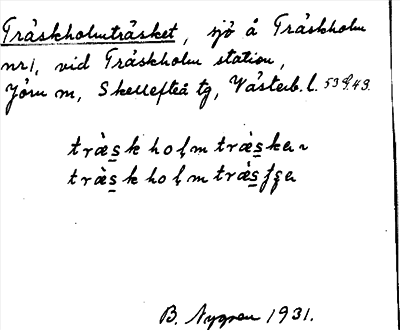 Träskholmträsket, sjö å Träskholm
nr 1, vid Träskholm station,
Jörn sn, Skellefteå tg, Västerb. l. 539.43.
träskholm träsker
träskholm träs
B. Nygren 1931.